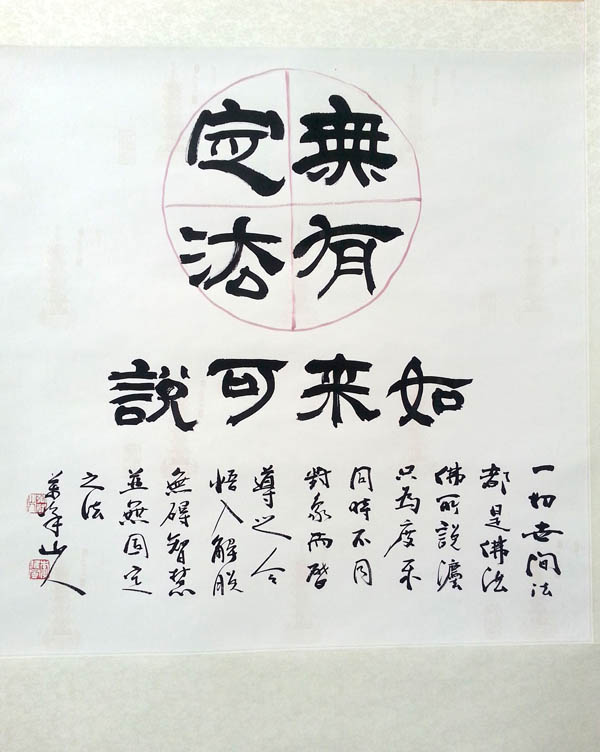 無有
定法
如来可說
一切世間法
都是佛法
佛所說灋
只為度不
同時不同
對象而啓
導之令
悟入解脫
無碍智慧
並無固定
之法
山人